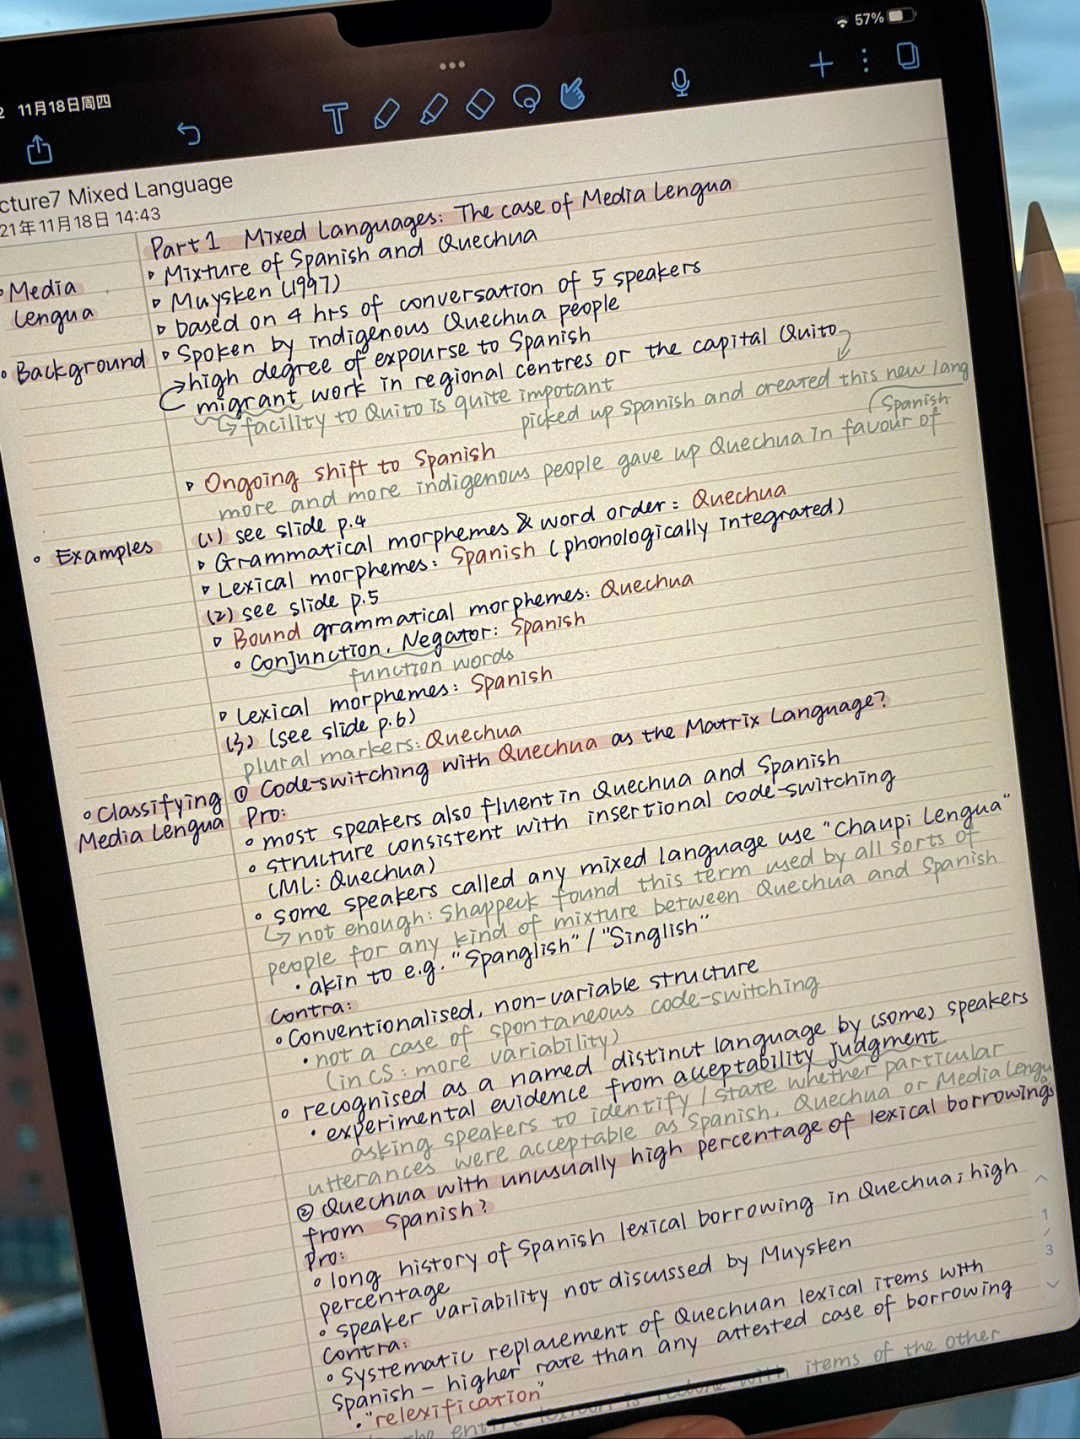 57%
11月18日周四
cture7 Mixed Language
21年11月18日 14:43
Part 1 Mixed Languages: The case of Media Lengua
• Media Lengua
▹ Mixture of Spanish and Quechua
▹ Muysken (1997)
▹ based on 4 hrs of conversation of 5 speakers
• Background
▹ Spoken by indigenous Quechua people
→ high degree of expourse to Spanish
migrant work in regional centres or the capital Quito
↳ facility to Quito is quite impotant
picked up Spanish and created this new lang
▹ Ongoing shift to Spanish
more and more indigenous people gave up Quechua in favour of
Spanish
• Examples
(1) see slide p.4
▹ Grammatical morphemes & word order: Quechua
▹ Lexical morphemes: Spanish (phonologically integrated)
(2) see slide p.5
▹ Bound grammatical morphemes: Quechua
• Conjunction, Negator: Spanish
function words
▹ Lexical morphemes: Spanish
(3) (see slide p.6)
plural markers: Quechua
• Classifying Media Lengua
① Code-switching with Quechua as the Matrix Language?
Pro:
• most speakers also fluent in Quechua and Spanish
• structure consistent with insertional code-switching
(ML: Quechua)
• some speakers called any mixed language use "Chaupi Lengua"
↳ not enough: Shappeck found this term used by all sorts of
people for any kind of mixture between Quechua and Spanish
• akin to e.g. "Spanglish" / "Singlish"
Contra:
• Conventionalised, non-variable structure
• not a case of spontaneous code-switching
(in CS: more variability)
• recognised as a named distinct language by (some) speakers
• experimental evidence from acceptability judgment
asking speakers to identify / state whether particular
utterances were acceptable as Spanish, Quechua or Media Lengu
② Quechua with unusually high percentage of lexical borrowings
from Spanish?
Pro:
• long history of Spanish lexical borrowing in Quechua; high
percentage
• speaker variability not discussed by Muysken
Contra:
• Systematic replacement of Quechuan lexical items with
Spanish – higher rate than any attested case of borrowing
• "relexification"
items of the other
1
/
3